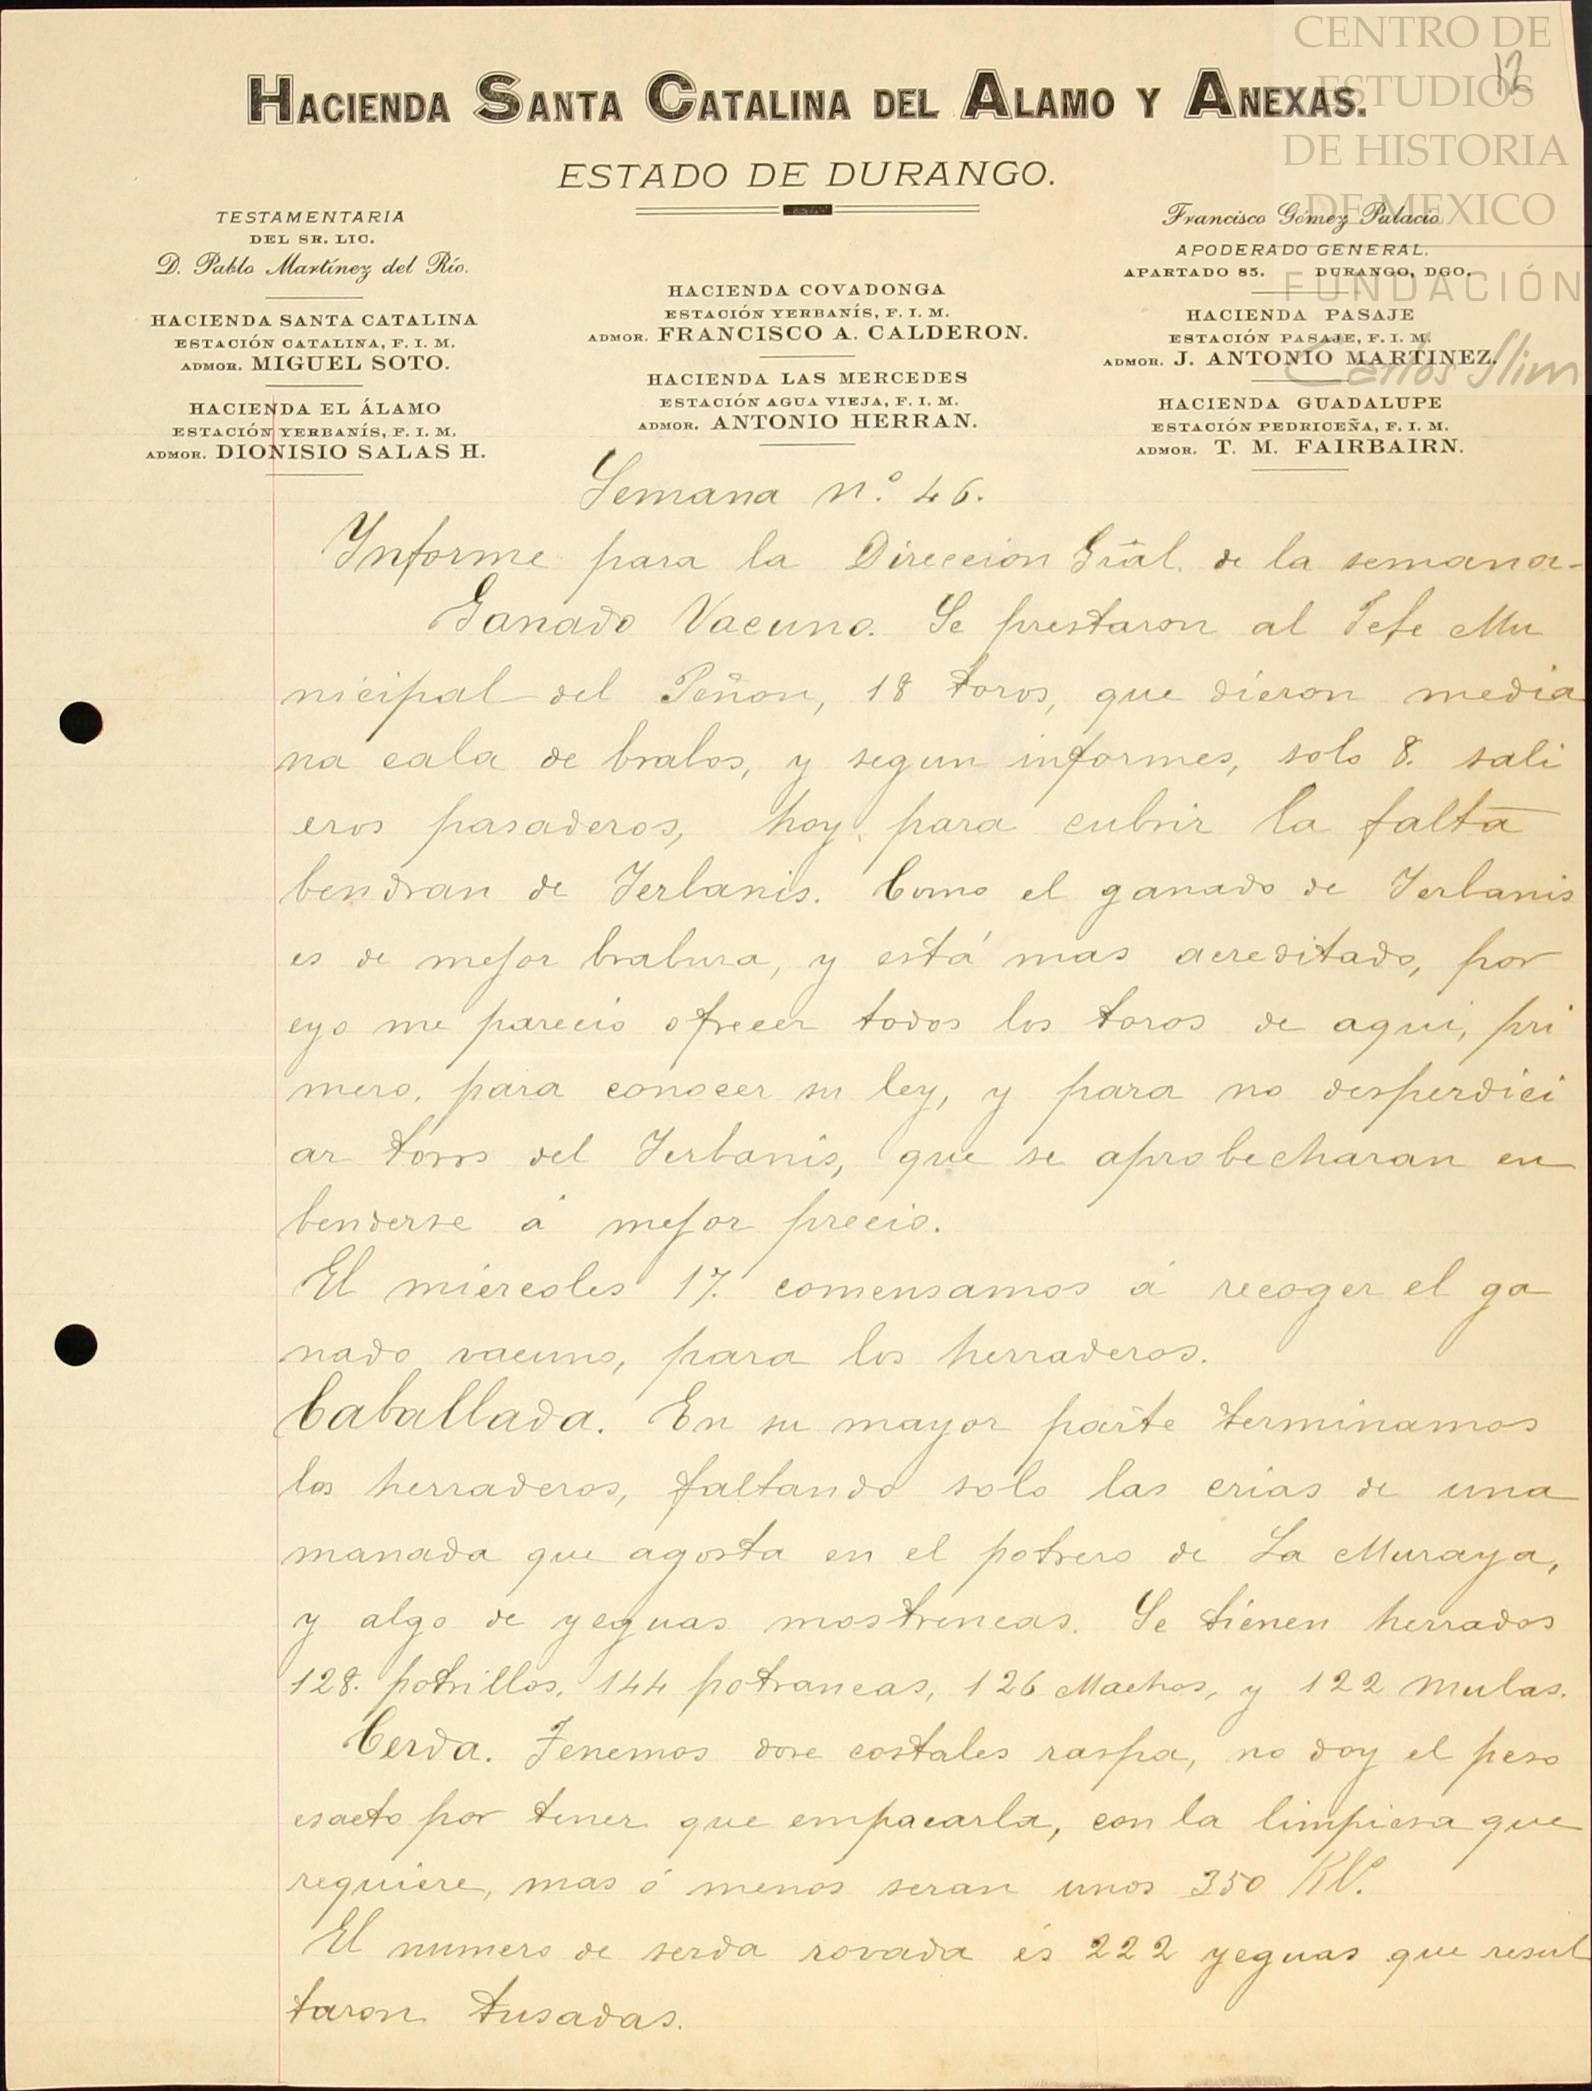 CENTRO DE
ESTUDIOS
DE HISTORIA
DE MEXICO
FUNDACIÓN
Carlos Slim
12
HACIENDA SANTA CATALINA DEL ALAMO Y ANEXAS.
ESTADO DE DURANGO.
TESTAMENTARIA
DEL SR. LIC.
D. Pablo Martínez del Río.
HACIENDA SANTA CATALINA
ESTACIÓN CATALINA, F. I. M.
ADMOR. MIGUEL SOTO.
HACIENDA EL ÁLAMO
ESTACIÓN YERBANÍS, F. I. M.
ADMOR. DIONISIO SALAS H.
HACIENDA COVADONGA
ESTACIÓN YERBANÍS, F. I. M.
ADMOR. FRANCISCO A. CALDERON.
HACIENDA LAS MERCEDES
ESTACIÓN AGUA VIEJA, F. I. M.
ADMOR. ANTONIO HERRAN.
Francisco Gómez Palacio
APODERADO GENERAL.
APARTADO 85. DURANGO, DGO.
HACIENDA PASAJE
ESTACIÓN PASAJE, F. I. M.
ADMOR. J. ANTONIO MARTINEZ.
HACIENDA GUADALUPE
ESTACIÓN PEDRICEÑA, F. I. M.
ADMOR. T. M. FAIRBAIRN.
Semana n.° 46.
Ynforme para la Direccion Gral. de la semana-
Ganado Vacuno. Se prestaron al Jefe Mu
nicipal del Peñon, 18 toros, que dieron media
na cala de brabos, y segun informes, solo 8. sali
eros pasaderos, hoy, para cubrir la falta
bendran de Yerbanis. Como el ganado de Yerbanis
es de mejor brabura, y está mas acreditado, por
eyo me parecio ofrecer todos los toros de aqui, pri
mero, para conocer su ley, y para no desperdici
ar toros del Yerbanis, que se aprobecharan en
benderse á mejor precio.
El miercoles 17. comensamos á recoger el ga
nado vacuno, para los herraderos.
Caballada. En su mayor parte terminamos
los herraderos, faltando solo las crias de una
manada que agosta en el potrero de La Muraya,
y algo de yeguas mostrencas. Se tienen herrados
128. potrillos, 144 potrancas, 126 Machos, y 122 mulas.
Cerda. Tenemos dose costales raspa, no doy el peso
esacto por tener que empacarla, con la limpiesa que
requiere, mas ó menos seran unos 350 Kl°.
El numero de serda rovada és 222 yeguas que resul
taron tusadas.